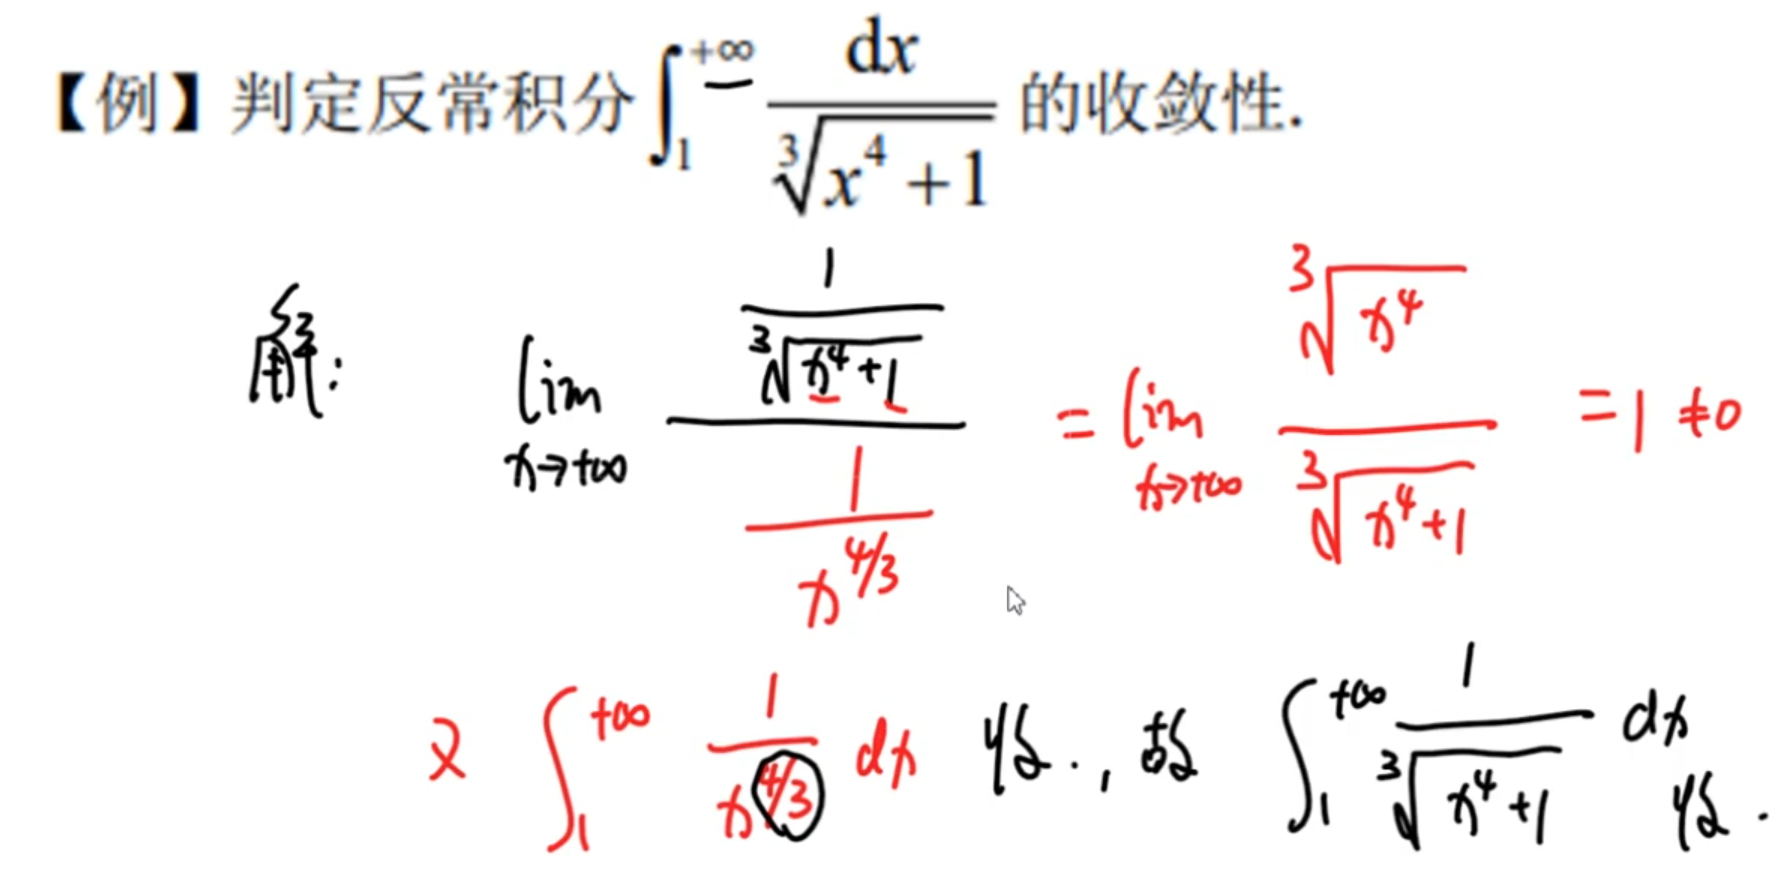 【例】判定反常积分 ∫₁^{+∞} dx/∛(x⁴+1) 的收敛性.
解: lim_{x→+∞} (1/∛(x⁴+1))/(1/x^{4/3}) = lim_{x→+∞} ∛(x⁴)/∛(x⁴+1) = 1 ≠ 0
又 ∫₁^{+∞} 1/x^{4/3} dx 收., 故 ∫₁^{+∞} 1/∛(x⁴+1) dx 收.